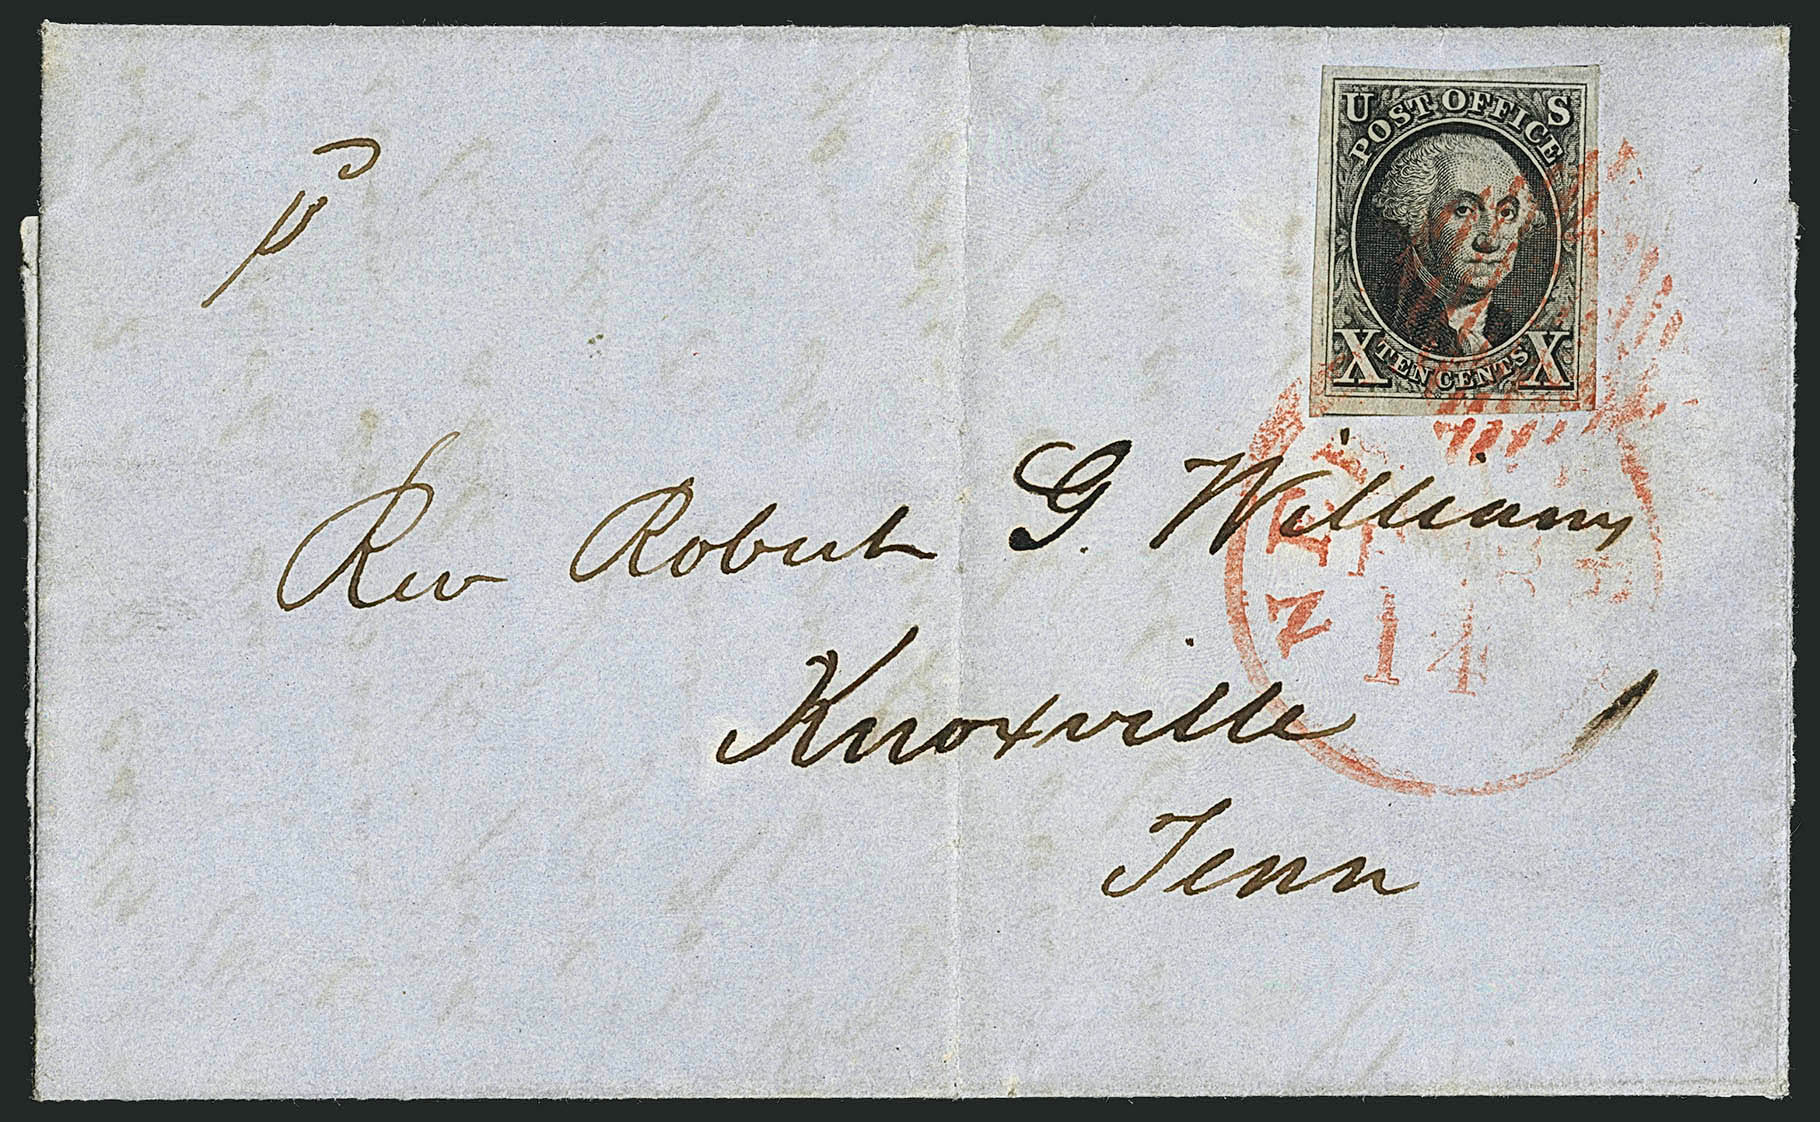 U S
POST OFFICE
X TEN CENTS X
Rev Robert G. Williams
14
Knoxville
Tenn